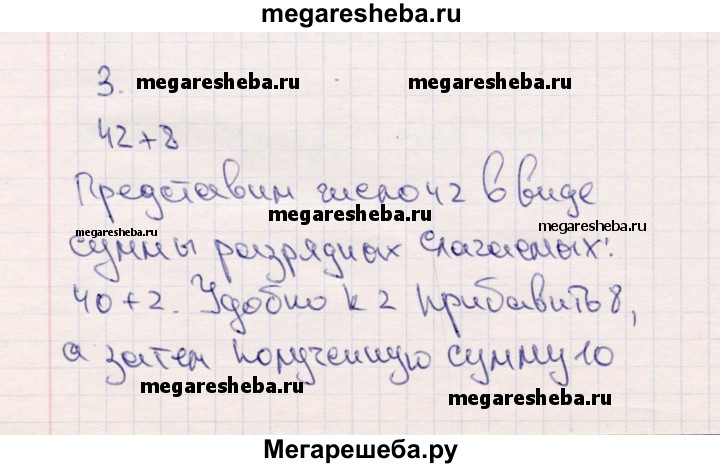 megaresheba.ru
3.
megaresheba.ru megaresheba.ru
42+8
Представим число 42 в виде
megaresheba.ru
megaresheba.ru megaresheba.ru
суммы разрядных слагаемых:
40+2. Удобно к 2 прибавить 8,
а затем полученную сумму 10
megaresheba.ru
megaresheba.ru
Мегарешеба.ру